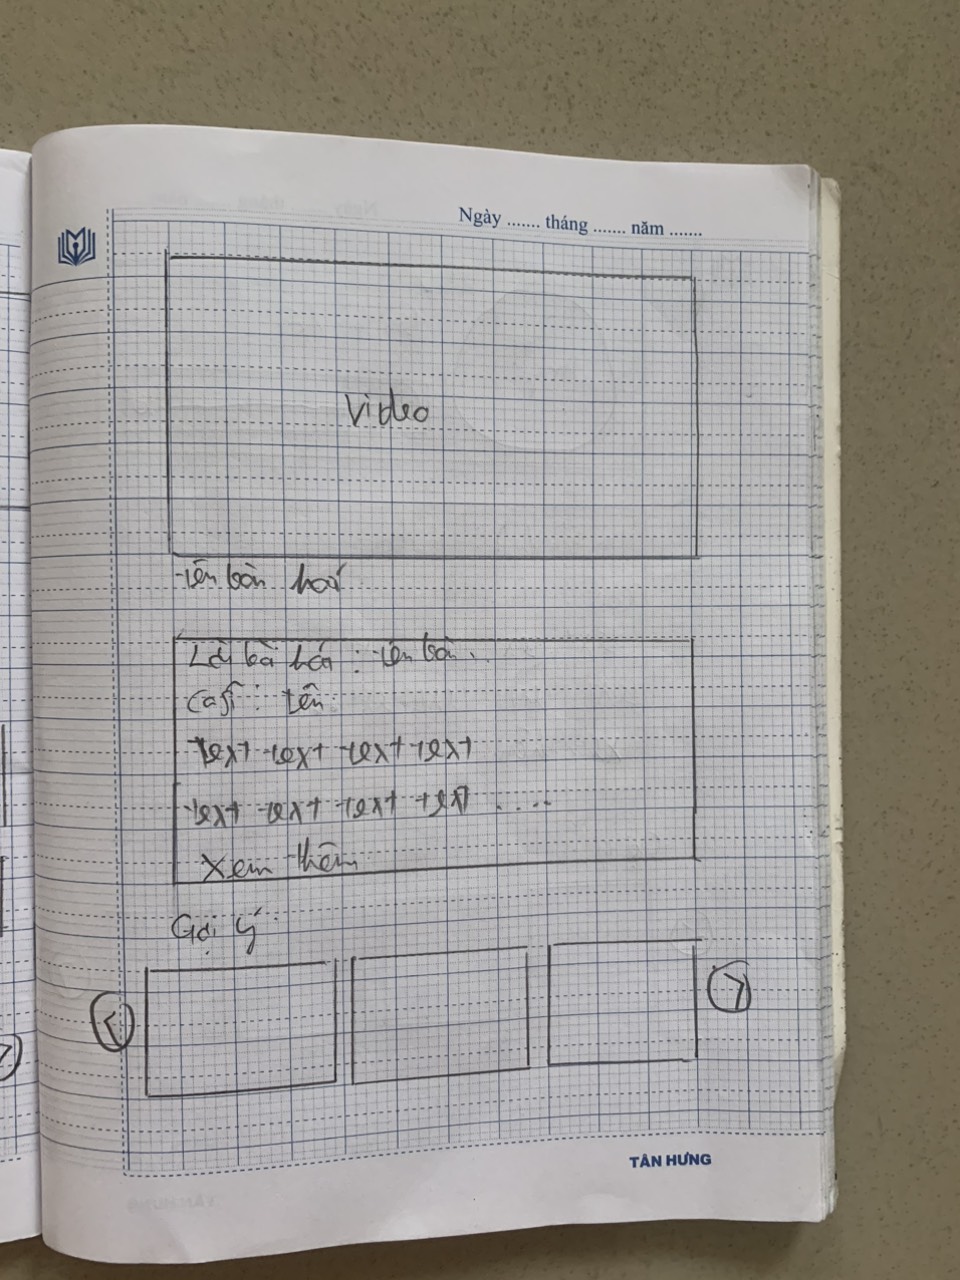 Ngày ....... tháng ....... năm .......
Video
tên bài hát
Lời bài hát : tên bài.
Ca sĩ : tên
text text text text
text text text text ....
Xem thêm
Gợi ý
<
>
TÂN HƯNG